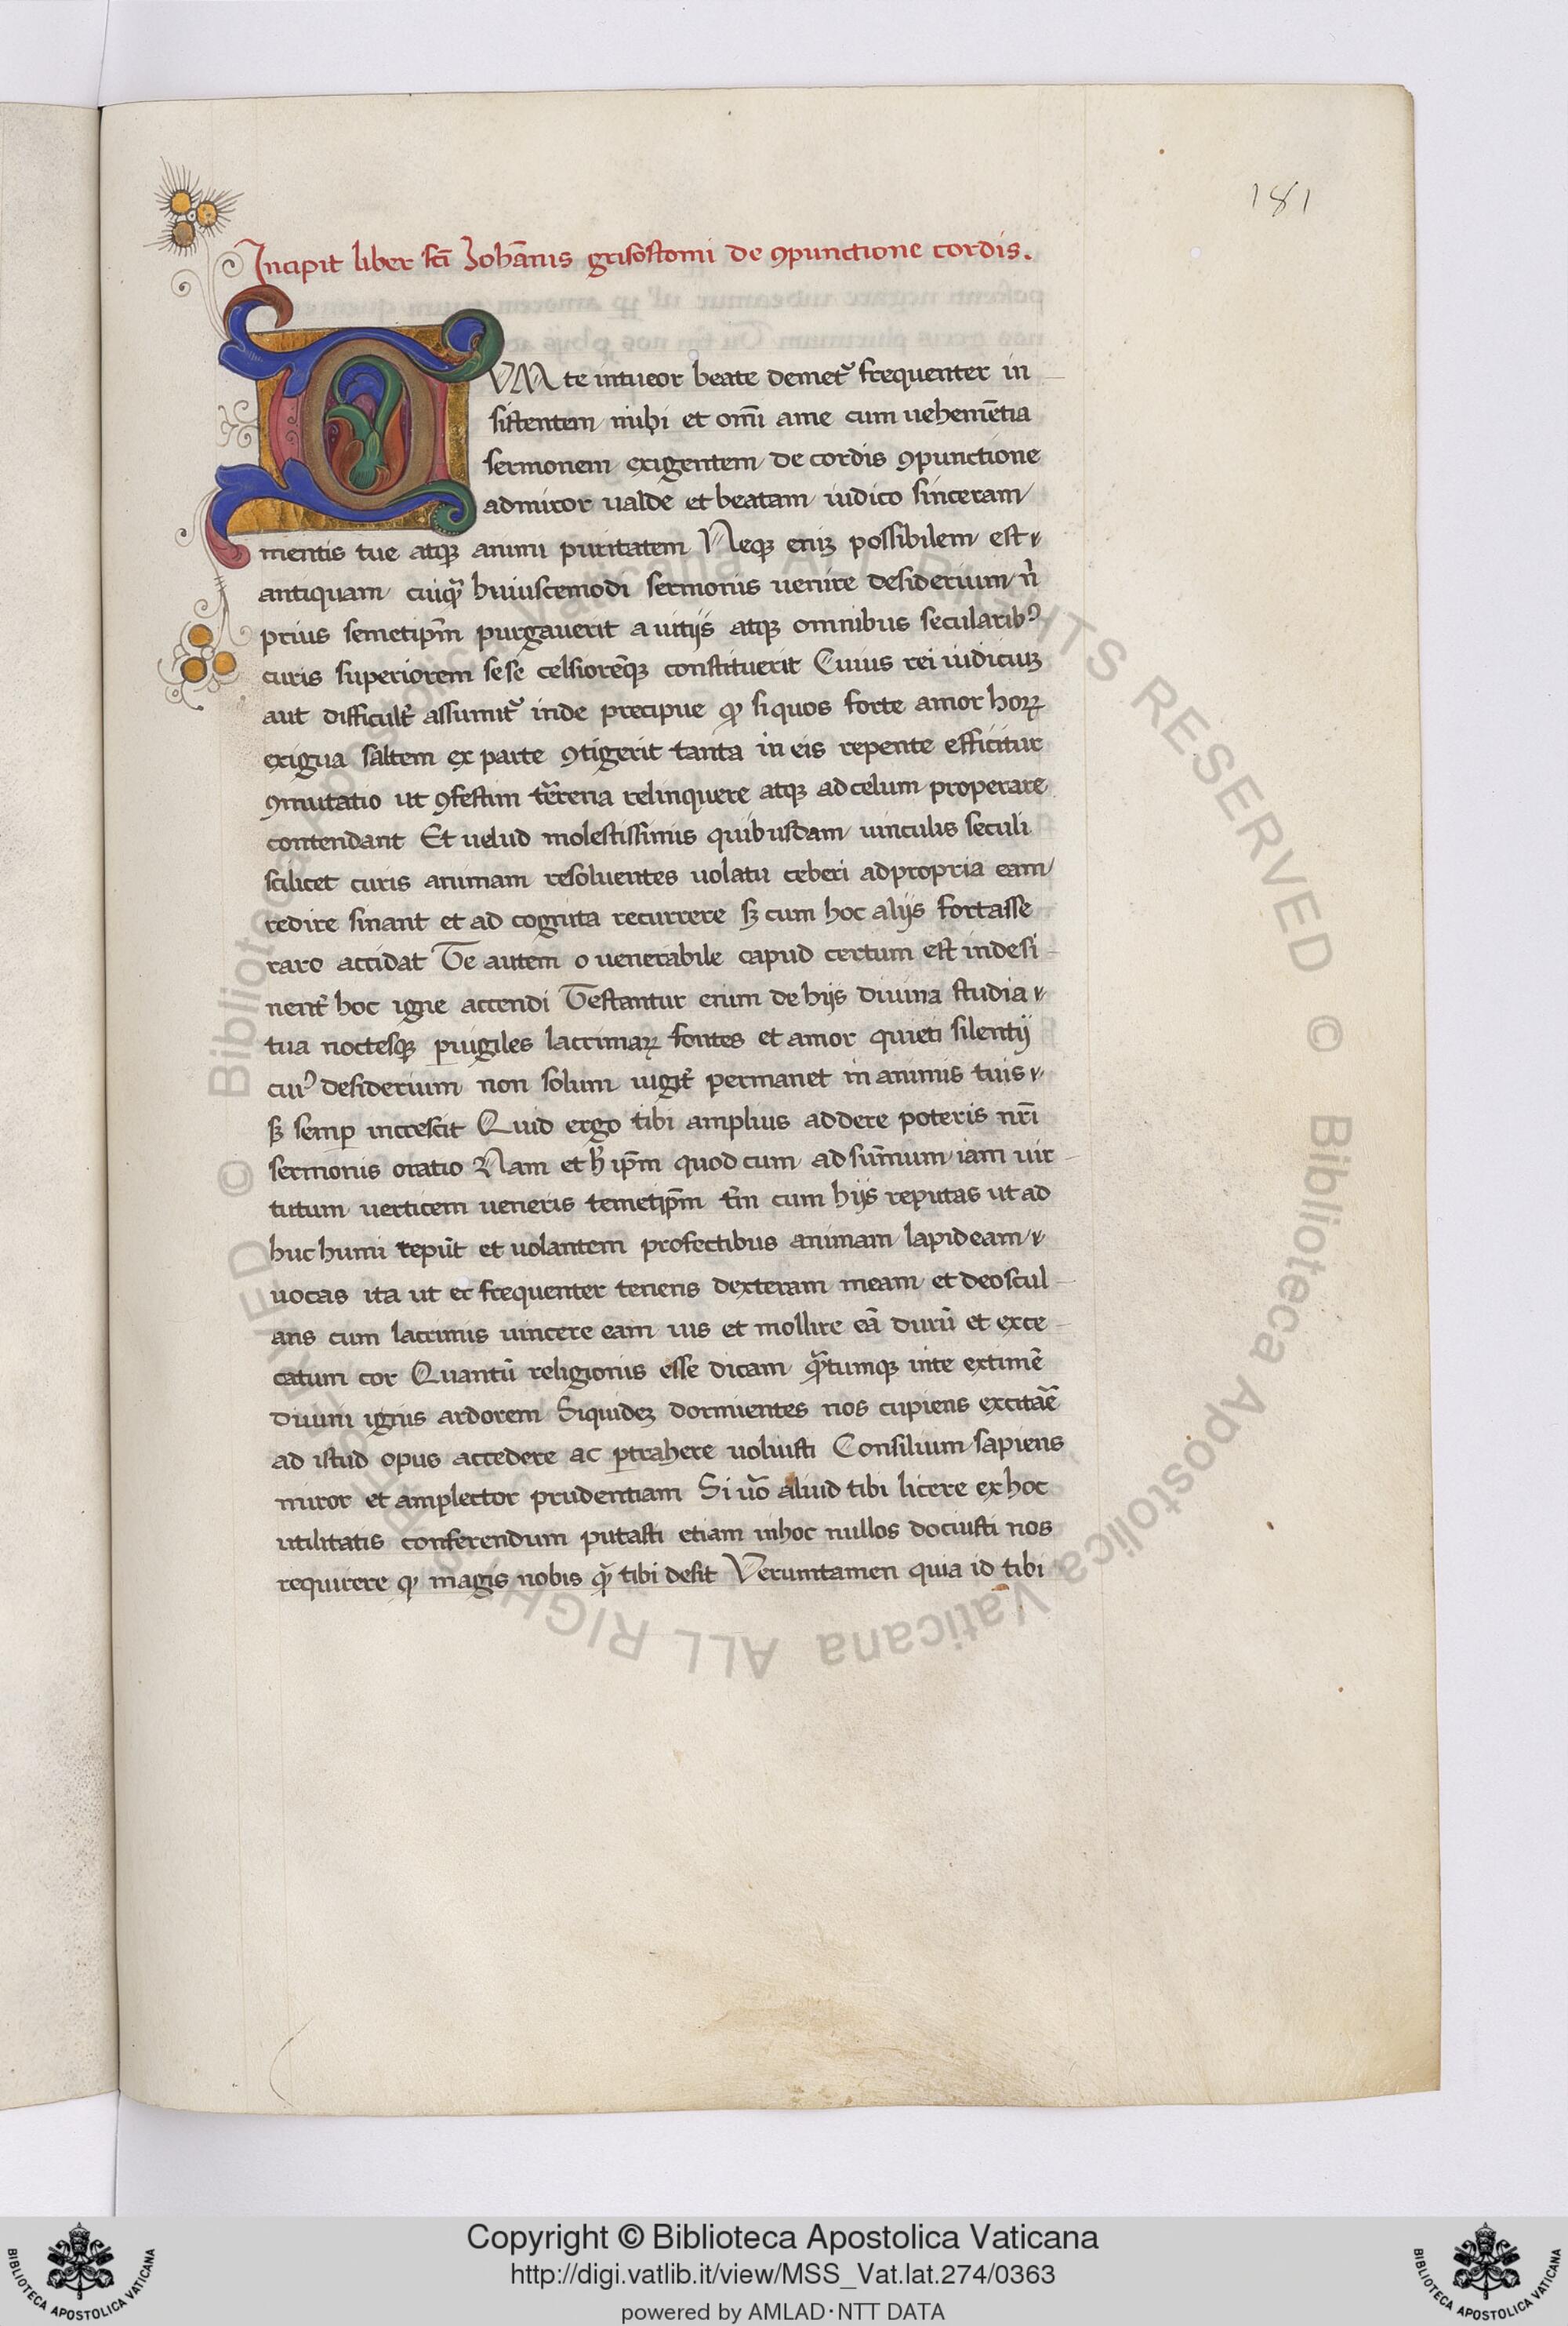 181
Incipit liber scī Iohānis grisostomi de ꝯpunctione cordis.
CVM te intueor beate demet᷑ frequenter in
sistentem mihi et omī a me cum uehemētia
sermonem exigentem de cordis ꝯpunctione
admiror ualde et beatam iudico sinceram
mentis tue atqꝫ animi puritatem Neqꝫ eniꝫ possibilem est
antiquam cuiqᷓ huiuscemodi sermonis uenire desiderium nͥ
prius semetip̄m purgauerit a uitijs atqꝫ omnibus secularibꝰ
curis superiorem sese celsiorēqꝫ constituerit Cuius rei iudiciuꝫ
aut difficult᷑ assumit᷑ inde precipue ꝙ si quos forte amor hoꝝ
exigua saltem ex parte ꝯtigerit tanta in eis repente efficitur
ꝯmutatio ut ꝯfestim t̄rena relinquere atqꝫ ad celum properare
contendant Et uelud molestissimis quibusdam uinculis seculi
scilicet curis animam resoluentes uolatu celeri ad propria eam
redire sinant et ad cognita recurrere sꝫ cum hoc alijs fortasse
raro accidat Te autem o uenerabile capud certum est indesi
nent᷑ hoc igne accendi Testantur enim de hijs diuina studia
tua noctesqꝫ ꝑuigiles lacrimaꝝ fontes et amor quieti silentij
cuiꝰ desiderium non solum uigit᷑ permanet in animis tuis
sꝫ semꝑ increscit Quid ergo tibi amplius addere poteris nr̄i
sermonis oratio Nam et h̄ ip̄m quod cum ad sūmum iam uir
tutum uerticem ueneris temetip̄m tm̄ cum hijs reputas ut ad
huc humi repūt et uolantem profectibus animam lapideam
uocas ita ut et frequenter tenens dexteram meam et deoscul
ans cum lacrimis uincere eam uis et mollire eā durū et exce
catum cor Quantū religionis esse dicam qᷓtumqꝫ in te extimē
diuini ignis ardorem Siquideꝫ dormientes nos cupiens excitāe
ad istud opus accedere ac ꝑtrahere uoluisti Consilium sapiens
miror et amplector prudentiam Si uō aliud tibi licere ex hoc
utilitatis conferendum putasti etiam in hoc nullos dociusti nos
requirere ꝙ magis nobis qᷓ tibi desit Veruntamen quia id tibi
© Biblioteca Apostolica Vaticana ALL RIGHTS RESERVED © Biblioteca Apostolica Vaticana ALL RIGHTS RESERVED
Copyright © Biblioteca Apostolica Vaticana
http://digi.vatlib.it/view/MSS_Vat.lat.274/0363
powered by AMLAD·NTT DATA
BIBLIOTECA APOSTOLICA VATICANA
BIBLIOTECA APOSTOLICA VATICANA